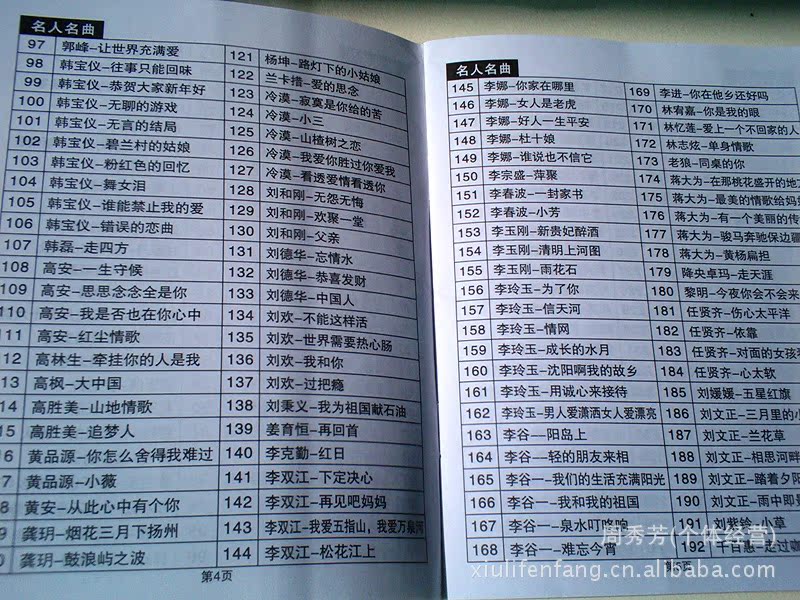 名人名曲
97 郭峰-让世界充满爱
98 韩宝仪-往事只能回味
99 韩宝仪-恭贺大家新年好
100 韩宝仪-无聊的游戏
101 韩宝仪-无言的结局
102 韩宝仪-碧兰村的姑娘
103 韩宝仪-粉红色的回忆
104 韩宝仪-舞女泪
105 韩宝仪-谁能禁止我的爱
106 韩宝仪-错误的恋曲
107 韩磊-走四方
108 高安-一生守候
109 高安-思思念念全是你
110 高安-我是否也在你心中
111 高安-红尘情歌
12 高林生-牵挂你的人是我
13 高枫-大中国
14 高胜美-山地情歌
15 高胜美-追梦人
6 黄品源-你怎么舍得我难过
7 黄品源-小薇
8 黄安-从此心中有个你
9 龚玥-烟花三月下扬州
0 龚玥-鼓浪屿之波
121 杨坤-路灯下的小姑娘
122 兰卡措-爱的思念
123 冷漠-寂寞是你给的苦
124 冷漠-小三
125 冷漠-山楂树之恋
126 冷漠-我爱你胜过你爱我
127 冷漠-看透爱情看透你
128 刘和刚-无怨无悔
129 刘和刚-欢聚一堂
130 刘和刚-父亲
131 刘德华-忘情水
132 刘德华-恭喜发财
133 刘德华-中国人
134 刘欢-不能这样活
135 刘欢-世界需要热心肠
136 刘欢-我和你
137 刘欢-过把瘾
138 刘秉义-我为祖国献石油
139 姜育恒-再回首
140 李克勤-红日
141 李双江-下定决心
142 李双江-再见吧妈妈
143 李双江-我爱五指山，我爱万泉河
144 李双江-松花江上
第4页
名人名曲
145 李娜-你家在哪里
146 李娜-女人是老虎
147 李娜-好人一生平安
148 李娜-杜十娘
149 李娜-谁说也不信它
150 李宗盛-萍聚
151 李春波-一封家书
152 李春波-小芳
153 李玉刚-新贵妃醉酒
154 李玉刚-清明上河图
155 李玉刚-雨花石
156 李玲玉-为了你
157 李玲玉-信天河
158 李玲玉-情网
159 李玲玉-成长的水月
160 李玲玉-沈阳啊我的故乡
161 李玲玉-用诚心来接待
162 李玲玉-男人爱潇洒女人爱漂亮
163 李谷一-阳岛上
164 李谷一-轻的朋友来相
165 李谷一-我们的生活充满阳光
166 李谷一-我和我的祖国
167 李谷一-泉水叮咚响
168 李谷一-难忘今宵
169 李进-你在他乡还好吗
170 林宥嘉-你是我的眼
171 林忆莲-爱上一个不回家的人
172 林志炫-单身情歌
173 老狼-同桌的你
174 蒋大为-在那桃花盛开的地
175 蒋大为-最美的情歌给妈
176 蒋大为-有一个美丽的传
177 蒋大为-骏马奔驰保边疆
178 蒋大为-黄杨扁担
179 降央卓玛-走天涯
180 黎明-今夜你会不会来
181 任贤齐-伤心太平洋
182 任贤齐-依靠
183 任贤齐-对面的女孩
184 任贤齐-心太软
185 刘媛媛-五星红旗
186 刘文正-三月里的小
187 刘文正-兰花草
188 刘文正-相思河畔
189 刘文正-踏着夕阳
190 刘文正-雨中即
191 刘紫铃-小草
192 千百惠-走过咖
第5页
周秀芳(个体经营)
xiulifenfang.cn.alibaba.com